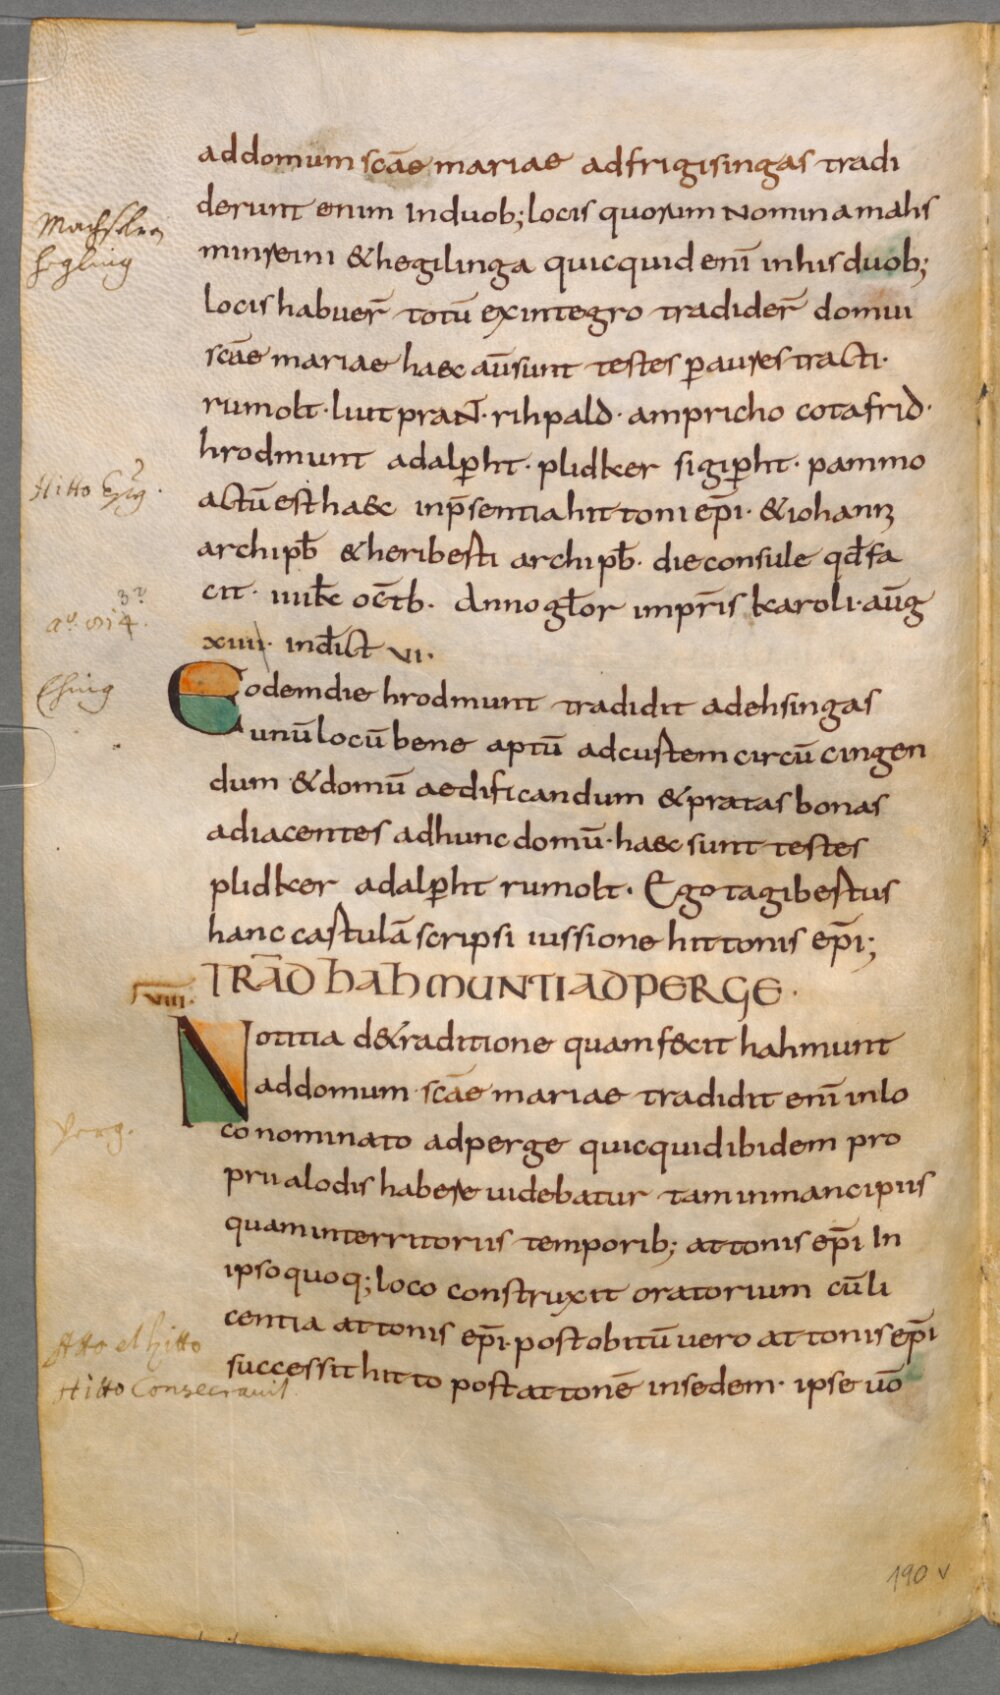 addomum scāe mariae adfrigisingas tradi
derunt enim induob; locis quorum nomina mahs
Machslrai
minreini & hegilinga quicquid enī inhis duob;
Hegling
locis habuer̄ totū ex integro tradider̄ domui
scāe mariae haec aūsunt testes p̄aures tracti·
rumolt·liutprant·rihpald·ampricho cotafrid·
hrodmunt adalp̄ht·plidker sigip̄ht·pammo
Hitto Ep̄g.
actū est haec inp̄sentia hittoni ep̄i·&iohann̄
archipb̄ &heribesti archipb̄·die consule qd̄ fa
cit·iiiik̄ oc̄tb·Anno gl̄or impr̄is karoli·aūg
3?
a.º 814.
xiiii· ind̄ict vi·
Ehing
Eodemdie hrodmunt tradidit adehsingas
unū locū bene aptū adcustem circū cingen
dum &domū aedificandum &pratas bonas
adiacentes adhunc domū·haec sunt testes
plidker adalp̄ht rumolt·Ego tagibestus
hanc castulā scripsi iussione hittonis ep̄i;
viiii· TRĀD HAHMUNTI AD PERGE·
Notitia de&raditione quam fecit hahmunt
addomum scāe mariae tradidit enī inlo
co nominato adperge quicquid ibidem pro
perg.
prii alodis habere uidebatur tam inmancipiis
quam interritoriis temporib; attonis ep̄i In
ipso quoq; loco construxit oratorium cū li
centia attonis ep̄i·post obitū uero attonis ep̄i
Atto et hitto
successit hitto post attonē insedem·ipse uō
Hitto Consecravit
190 v